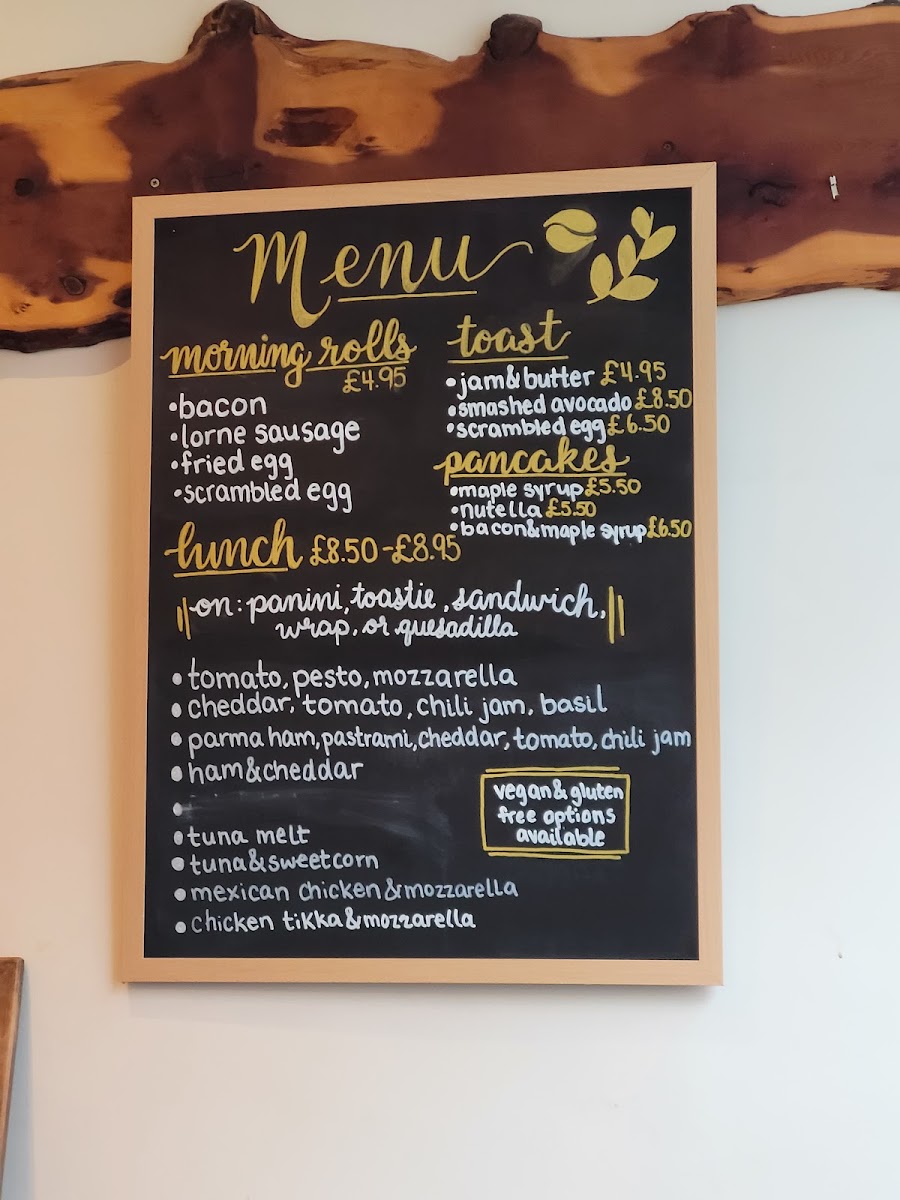 Menu
morning rolls
£4.95
•bacon
•lorne sausage
•fried egg
•scrambled egg
toast
•jam&butter £4.95
•smashed avocado £8.50
•scrambled egg £6.50
pancakes
•maple syrup £5.50
•nutella £5.50
•bacon&maple syrup £6.50
lunch £8.50-£8.95
on: panini, toastie, sandwich,
wrap, or quesadilla
•tomato, pesto, mozzarella
•cheddar, tomato, chili jam, basil
•parma ham, pastrami, cheddar, tomato, chili jam
•ham&cheddar
•
•tuna melt
•tuna&sweetcorn
•mexican chicken&mozzarella
•chicken tikka&mozzarella
vegan&gluten
free options
available